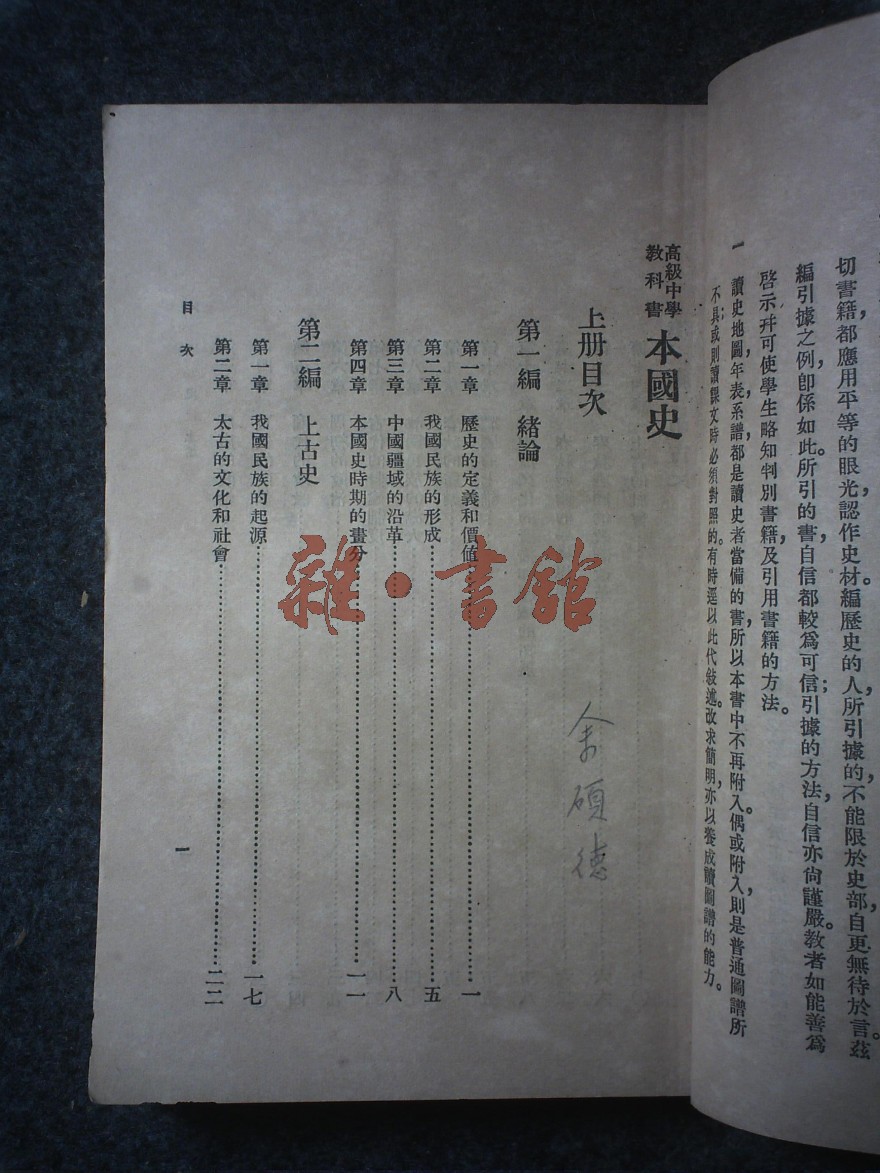 切書籍，都應用平等的眼光，認作史材。編歷史的人，所引據的，不能限於史部，自更無待於言。茲
編引據之例，卽係如此。所引的書，自信都較爲可信；引據的方法，自信亦尙謹嚴。教者如能善爲
啓示，幷可使學生略知判別書籍，及引用書籍的方法。
一　讀史地圖，年表，系譜，都是讀史者當備的書，所以本書中不再附入。偶或附入，則是普通圖譜所
不具；或則讀課文時必須對照的。有時逕以此代敍述。改求簡明，亦以養成讀圖譜的能力。
高級中學
教科書
本國史
上册目次
第一編　緒論
第一章　歷史的定義和價値……一
第二章　我國民族的形成……五
第三章　中國疆域的沿革……八
第四章　本國史時期的畫分……一一
第二編　上古史
第一章　我國民族的起源……一七
第二章　太古的文化和社會……二二
目次
一
余碩德
雜·書館